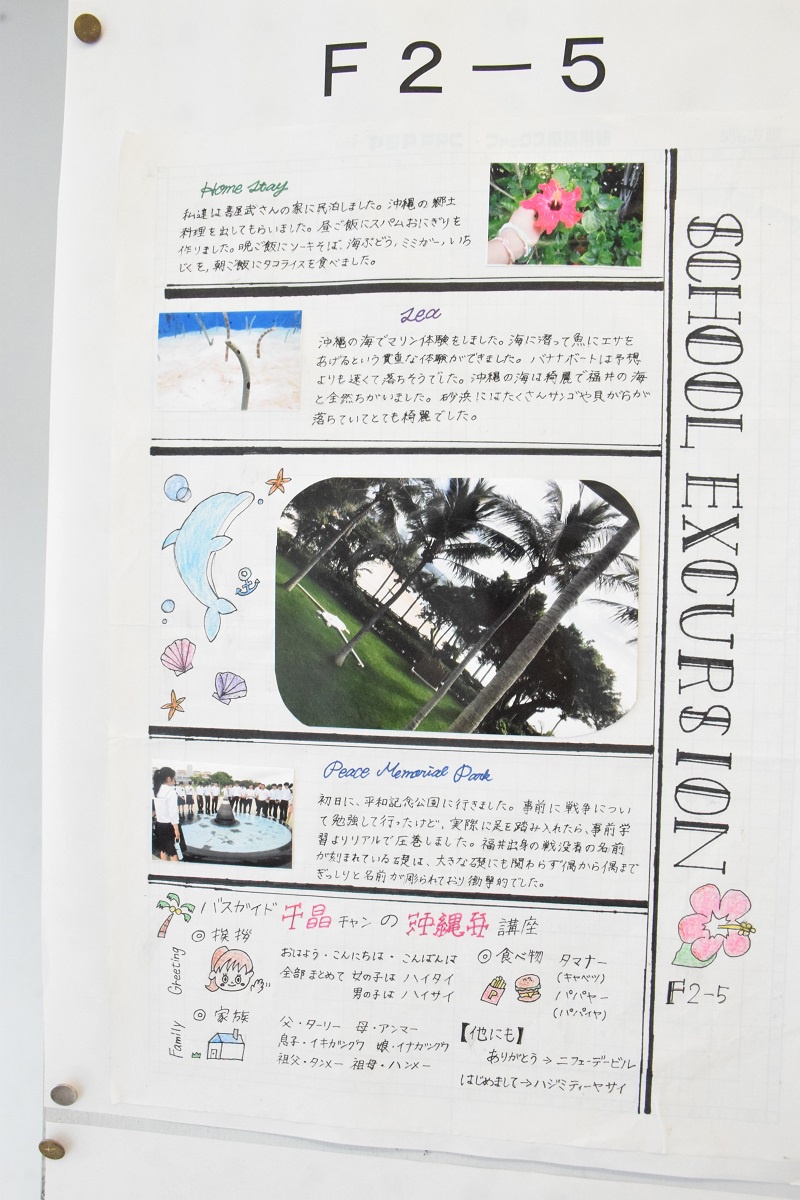 F2-5
SCHOOL EXCURSION
F2-5
Home stay
私達は喜屋武さんの家に民泊しました。沖縄の郷土
料理を出してもらいました。昼ご飯にスパムおにぎりを
作りました。晩ご飯にソーキそば、海ぶどう、ミミガー、いち
じくを、朝ご飯にタコライスを食べました。
sea
沖縄の海でマリン体験をしました。海に潜って魚にエサを
あげるという貴重な体験ができました。バナナボートは予想
よりも速くて落ちそうでした。沖縄の海は綺麗で福井の海
と全然ちがいました。砂浜にはたくさんサンゴや貝がらが
落ちていてとても綺麗でした。
Peace Memorial Park
初日に、平和記念公園に行きました。事前に戦争につい
て勉強して行ったけど、実際に足を踏み入れたら、事前学
習よりリアルで圧巻しました。福井出身の戦没者の名前
が刻まれている礎は、大きな礎にも関わらず隅から隅まで
ぎっしりと名前が彫られており衝撃的でした。
バスガイド千晶チャンの沖縄弁講座
Greeting
◎挨拶
おはよう・こんにちは・こんばんは
全部まとめて 女の子は ハイタイ
男の子は ハイサイ
Family
◎家族
父・ターリー 母・アンマー
息子・イキガングヮ 娘・イナガングヮ
祖父・タンメー 祖母・ハンメー
◎食べ物 タマナー
(キャベツ)
パパヤー
(パパイヤ)
【他にも】
ありがとう→ニフェーデービル
はじめまして→ハジミティーヤサイ